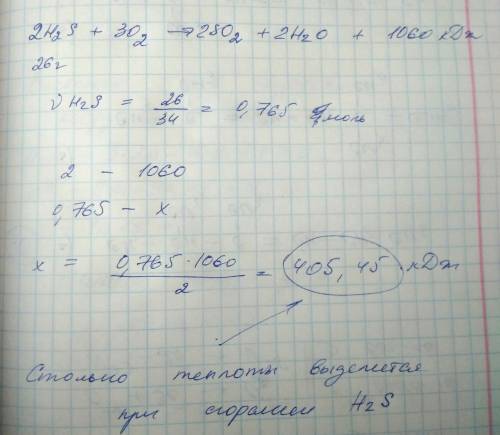 2H₂S + 3O₂ → 2SO₂ + 2H₂O + 1060 кДж
26г
ν H₂S = 26/34 = 0,765 моль
2 — 1060
0,765 — x
x = 0,765·1060/2 = 405,45 кДж
Столько теплоты выделится
при сгорании H₂S